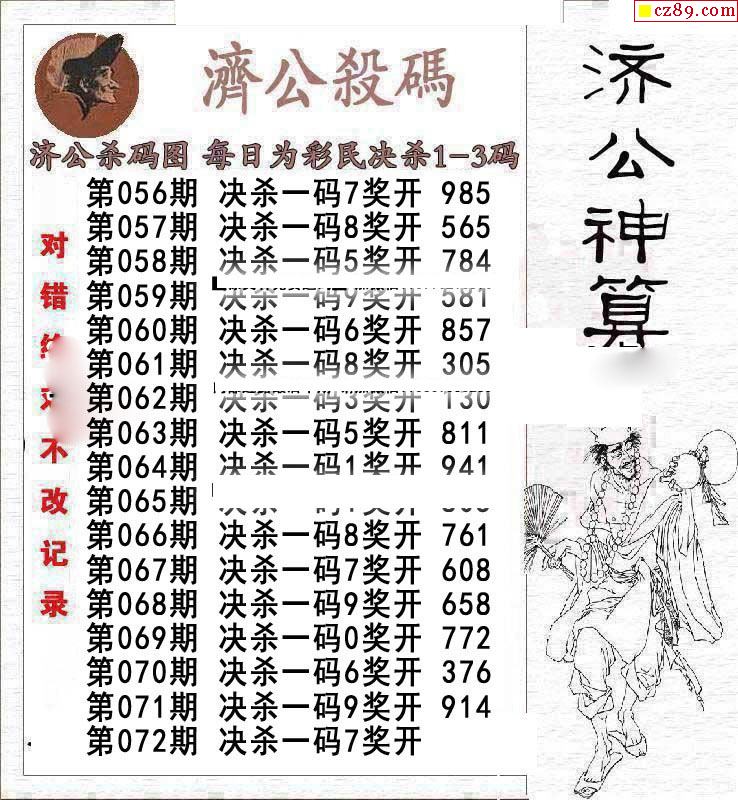 cz89.com
濟公殺碼
济公杀码图 每日为彩民决杀1-3码
第056期 决杀一码7奖开 985
第057期 决杀一码8奖开 565
第058期 决杀一码5奖开 784
第059期 决杀一码9奖开 581
第060期 决杀一码6奖开 857
第061期 决杀一码8奖开 305
第062期 决杀一码3奖开 130
第063期 决杀一码5奖开 811
第064期 决杀一码1奖开 941
第065期
第066期 决杀一码8奖开 761
第067期 决杀一码7奖开 608
第068期 决杀一码9奖开 658
第069期 决杀一码0奖开 772
第070期 决杀一码6奖开 376
第071期 决杀一码9奖开 914
第072期 决杀一码7奖开
对错
不改记录
济公神算